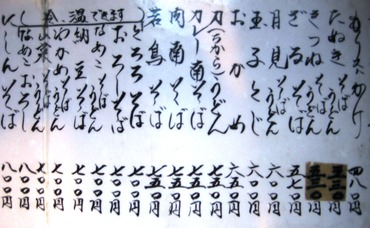 たぬき そば うどん 五三〇
きつね そば うどん 五三〇
ざるそば 五七〇円
月見そば 六〇〇円
玉子とじ 六〇〇円
おかめ 六五〇円
力(ちから)うどん
カレー南そば 七五〇円
肉南そば 七五〇円
若鳥そば 七五〇円
冷、温できます
とろろそば 七〇〇円
おろしそば 七〇〇円
なめこそば 七〇〇円
納豆そば 七〇〇円
わかめ そば うどん 七〇〇円
山菜 そば うどん 七〇〇円
八〇〇円
にしんそば 八〇〇円